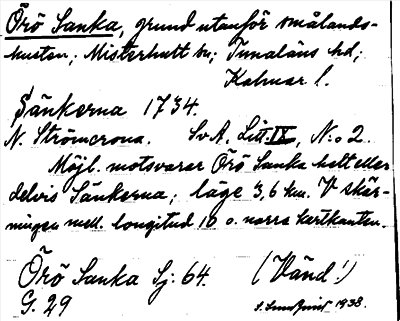 Örö Sanka, grund utanför smålands-
kusten; Misterhult sn; Tunaläns hd;
Kalmar l.
Sänkerna 1734.
N. Strömcrona. Sv A. Litt IX, N:o 2.
Möjl. motsvarar Örö Sanka helt eller
delvis Sänkerna; läge 3,6 km. V skär-
ningen mell. longitud 10 o. norra kartkanten.
Örö Sanka Sj. 64. (Vänd!)
G. 29 1938.